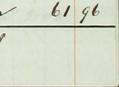 61 96